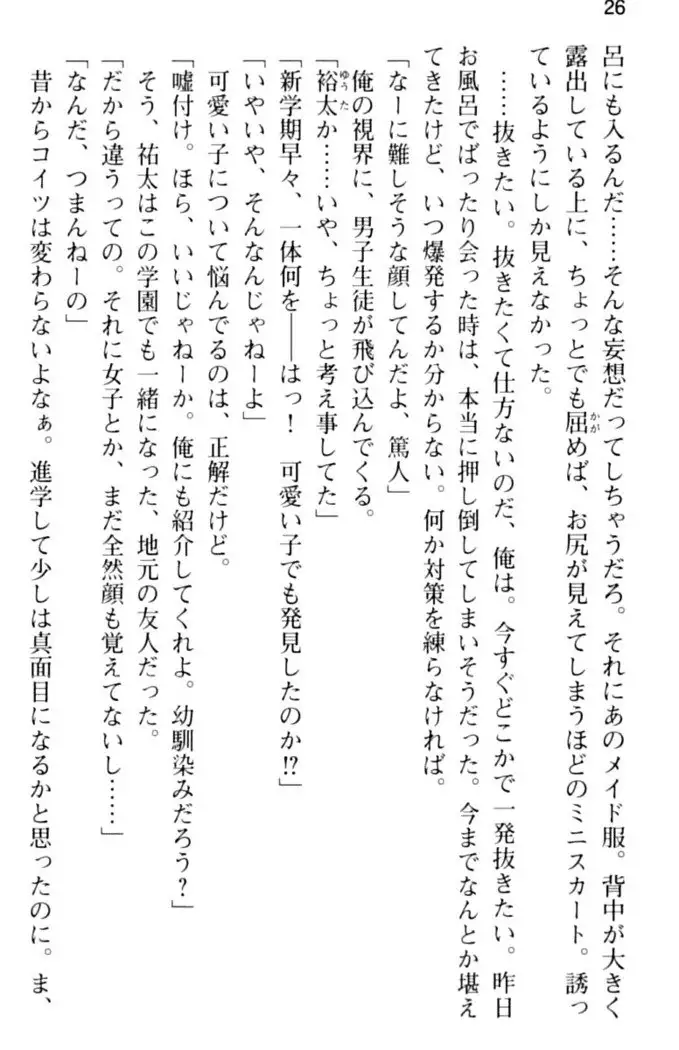 26
呂にも入るんだ……そんな妄想だってしちゃうだろ。それにあのメイド服。背中が大きく
露出している上に、ちょっとでも屈めば、お尻が見えてしまうほどのミニスカート。誘っ
ているようにしか見えなかった。
……抜きたい。抜きたくて仕方ないのだ、俺は。今すぐどこかで一発抜きたい。昨日
お風呂でばったり会った時は、本当に押し倒してしまいそうだった。今までなんとか堪え
てきたけど、いつ爆発するか分からない。何か対策を練らなければ。
「なーに難しそうな顔してんだよ、篤人」
俺の視界に、男子生徒が飛び込んでくる。
「裕太か……いや、ちょっと考え事してた」
「新学期早々、一体何を――はっ！　可愛い子でも発見したのか!?」
「いやいや、そんなんじゃねーよ」
可愛い子について悩んでるのは、正解だけど。
「嘘付け。ほら、いいじゃねーか。俺にも紹介してくれよ。幼馴染みだろう？」
そう、祐太はこの学園でも一緒になった、地元の友人だった。
「だから違うっての。それに女子とか、まだ全然顔も覚えてないし……」
「なんだ、つまんねーの」
昔からコイツは変わらないよなぁ。進学して少しは真面目になるかと思ったのに。ま、